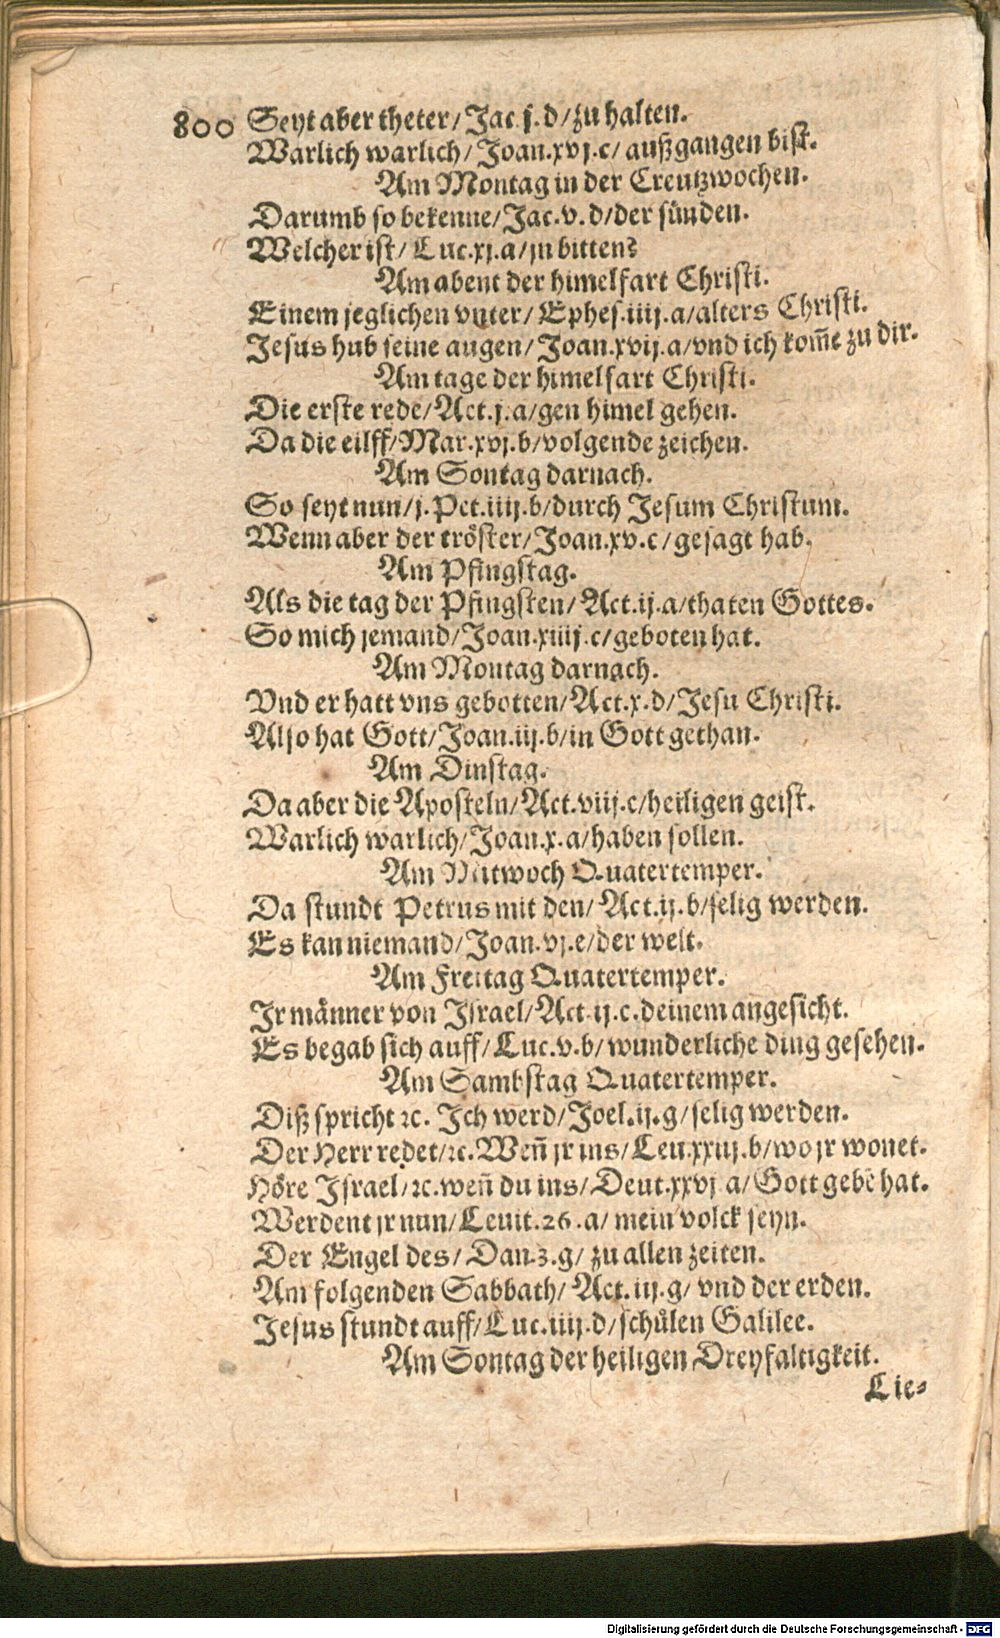 800 Seyt aber theter/ Jac j.d/zu halten.
Warlich warlich/ Joan.xvj.c/ außgangen bist.
Am Montag in der Creutzwochen.
Darumb so bekenne/Jac.v.d/der sünden.
Welcher ist/ Luc.xj.a/jn bitten?
Am abent der himelfart Christi.
Einem jeglichen vnter/ Ephes.iiij.a/alters Christi.
Jesus hub seine augen/Joan.xvij.a/vnd ich kom̃e zu dir.
Am tage der himelfart Christi.
Die erste rede/Act.j.a/gen himel gehen.
Da die eilff/Mar.xvj.b/volgende zeichen.
Am Sontag darnach.
So seyt nun/j.Pet.iiij.b/durch Jesum Christum.
Wenn aber der tröster/Joan.xv.c/gesagt hab.
Am Pfingstag.
Als die tag der Pfingsten/Act.ij.a/thaten Gottes.
So mich jemand/Joan.xiiij.c/geboten hat.
Am Montag darnach.
Vnd er hatt vns gebotten/Act.x.d/Jesu Christi.
Also hat Gott/Joan.iij.b/in Gott gethan.
Am Dinstag.
Da aber die Aposteln/Act.viij.c/heiligen geist.
Warlich warlich/Joan.x.a/haben sollen.
Am Mitwoch Quatertemper.
Da stundt Petrus mit den/Act.ij.b/selig werden.
Es kan niemand/Joan.vj.e/der welt.
Am Freitag Quatertemper.
Jr männer von Jsrael/Act.ij.c.deinem angesicht.
Es begab sich auff/Luc.v.b/wunderliche ding gesehen.
Am Sambstag Quatertemper.
Diß spricht ꝛc. Jch werd/Joel.ij.g/selig werden.
Der Herr redet/ꝛc.Weñ jr ins/Leu.xxiij.b/wo jr wonet.
Höre Jsrael/ꝛc.weñ du ins/Deut.xxvj a/Gott gebē hat.
Werdent jr nun/Leuit.26.a/mein volck seyn.
Der Engel des/Dan.3.g/ zu allen zeiten.
Am folgenden Sabbath/ Act.iij.g/ vnd der erden.
Jesus stundt auff/Luc.iiij.d/schůlen Galilee.
Am Sontag der heiligen Dreyfaltigkeit.
Lie-
Digitalisierung gefördert durch die Deutsche Forschungsgemeinschaft - DFG